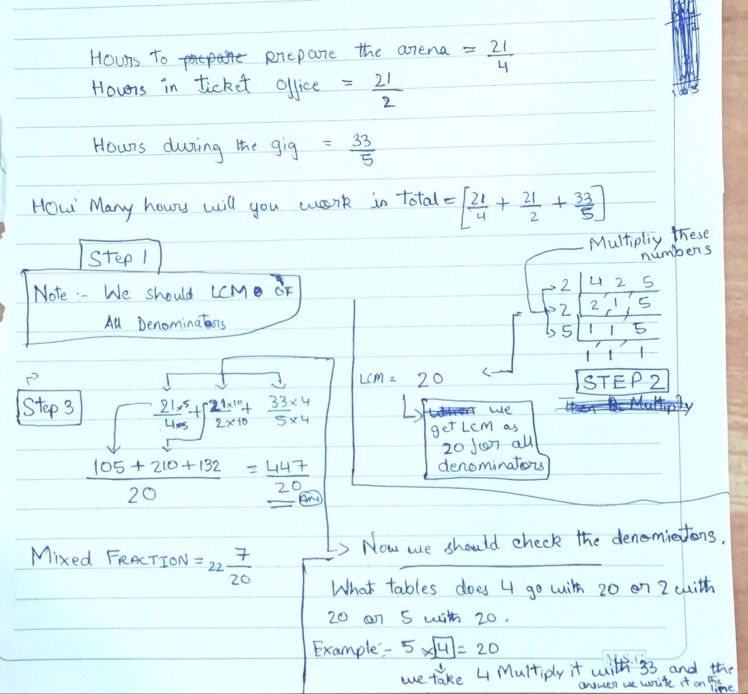 Hours to prepare prepare the arena = 21/4
Hours in ticket office = 21/2
Hours during the gig = 33/5
How Many hours will you work in total = [21/4 + 21/2 + 33/5]
Step 1
Note :- We should LCM OF
All Denominators
Multipliy these
numbers
2 | 4 2 5
2 | 2, 1, 5
5 | 1 1 5
1 1 1
LCM = 20
STEP 2
we
get LCM as
20 for all
denominators
Step 3
21×5/4×5 + 21×10/2×10 + 33×4/5×4
105 + 210 + 132 / 20 = 447/20 Ans
Mixed FRACTION = 22 7/20
Now we should check the denomienators.
What tables does 4 go with 20 or 2 with
20 or 5 with 20.
Example:- 5 × 4 = 20
we take 4 Multiply it with 33 and the
answer we write it on the line